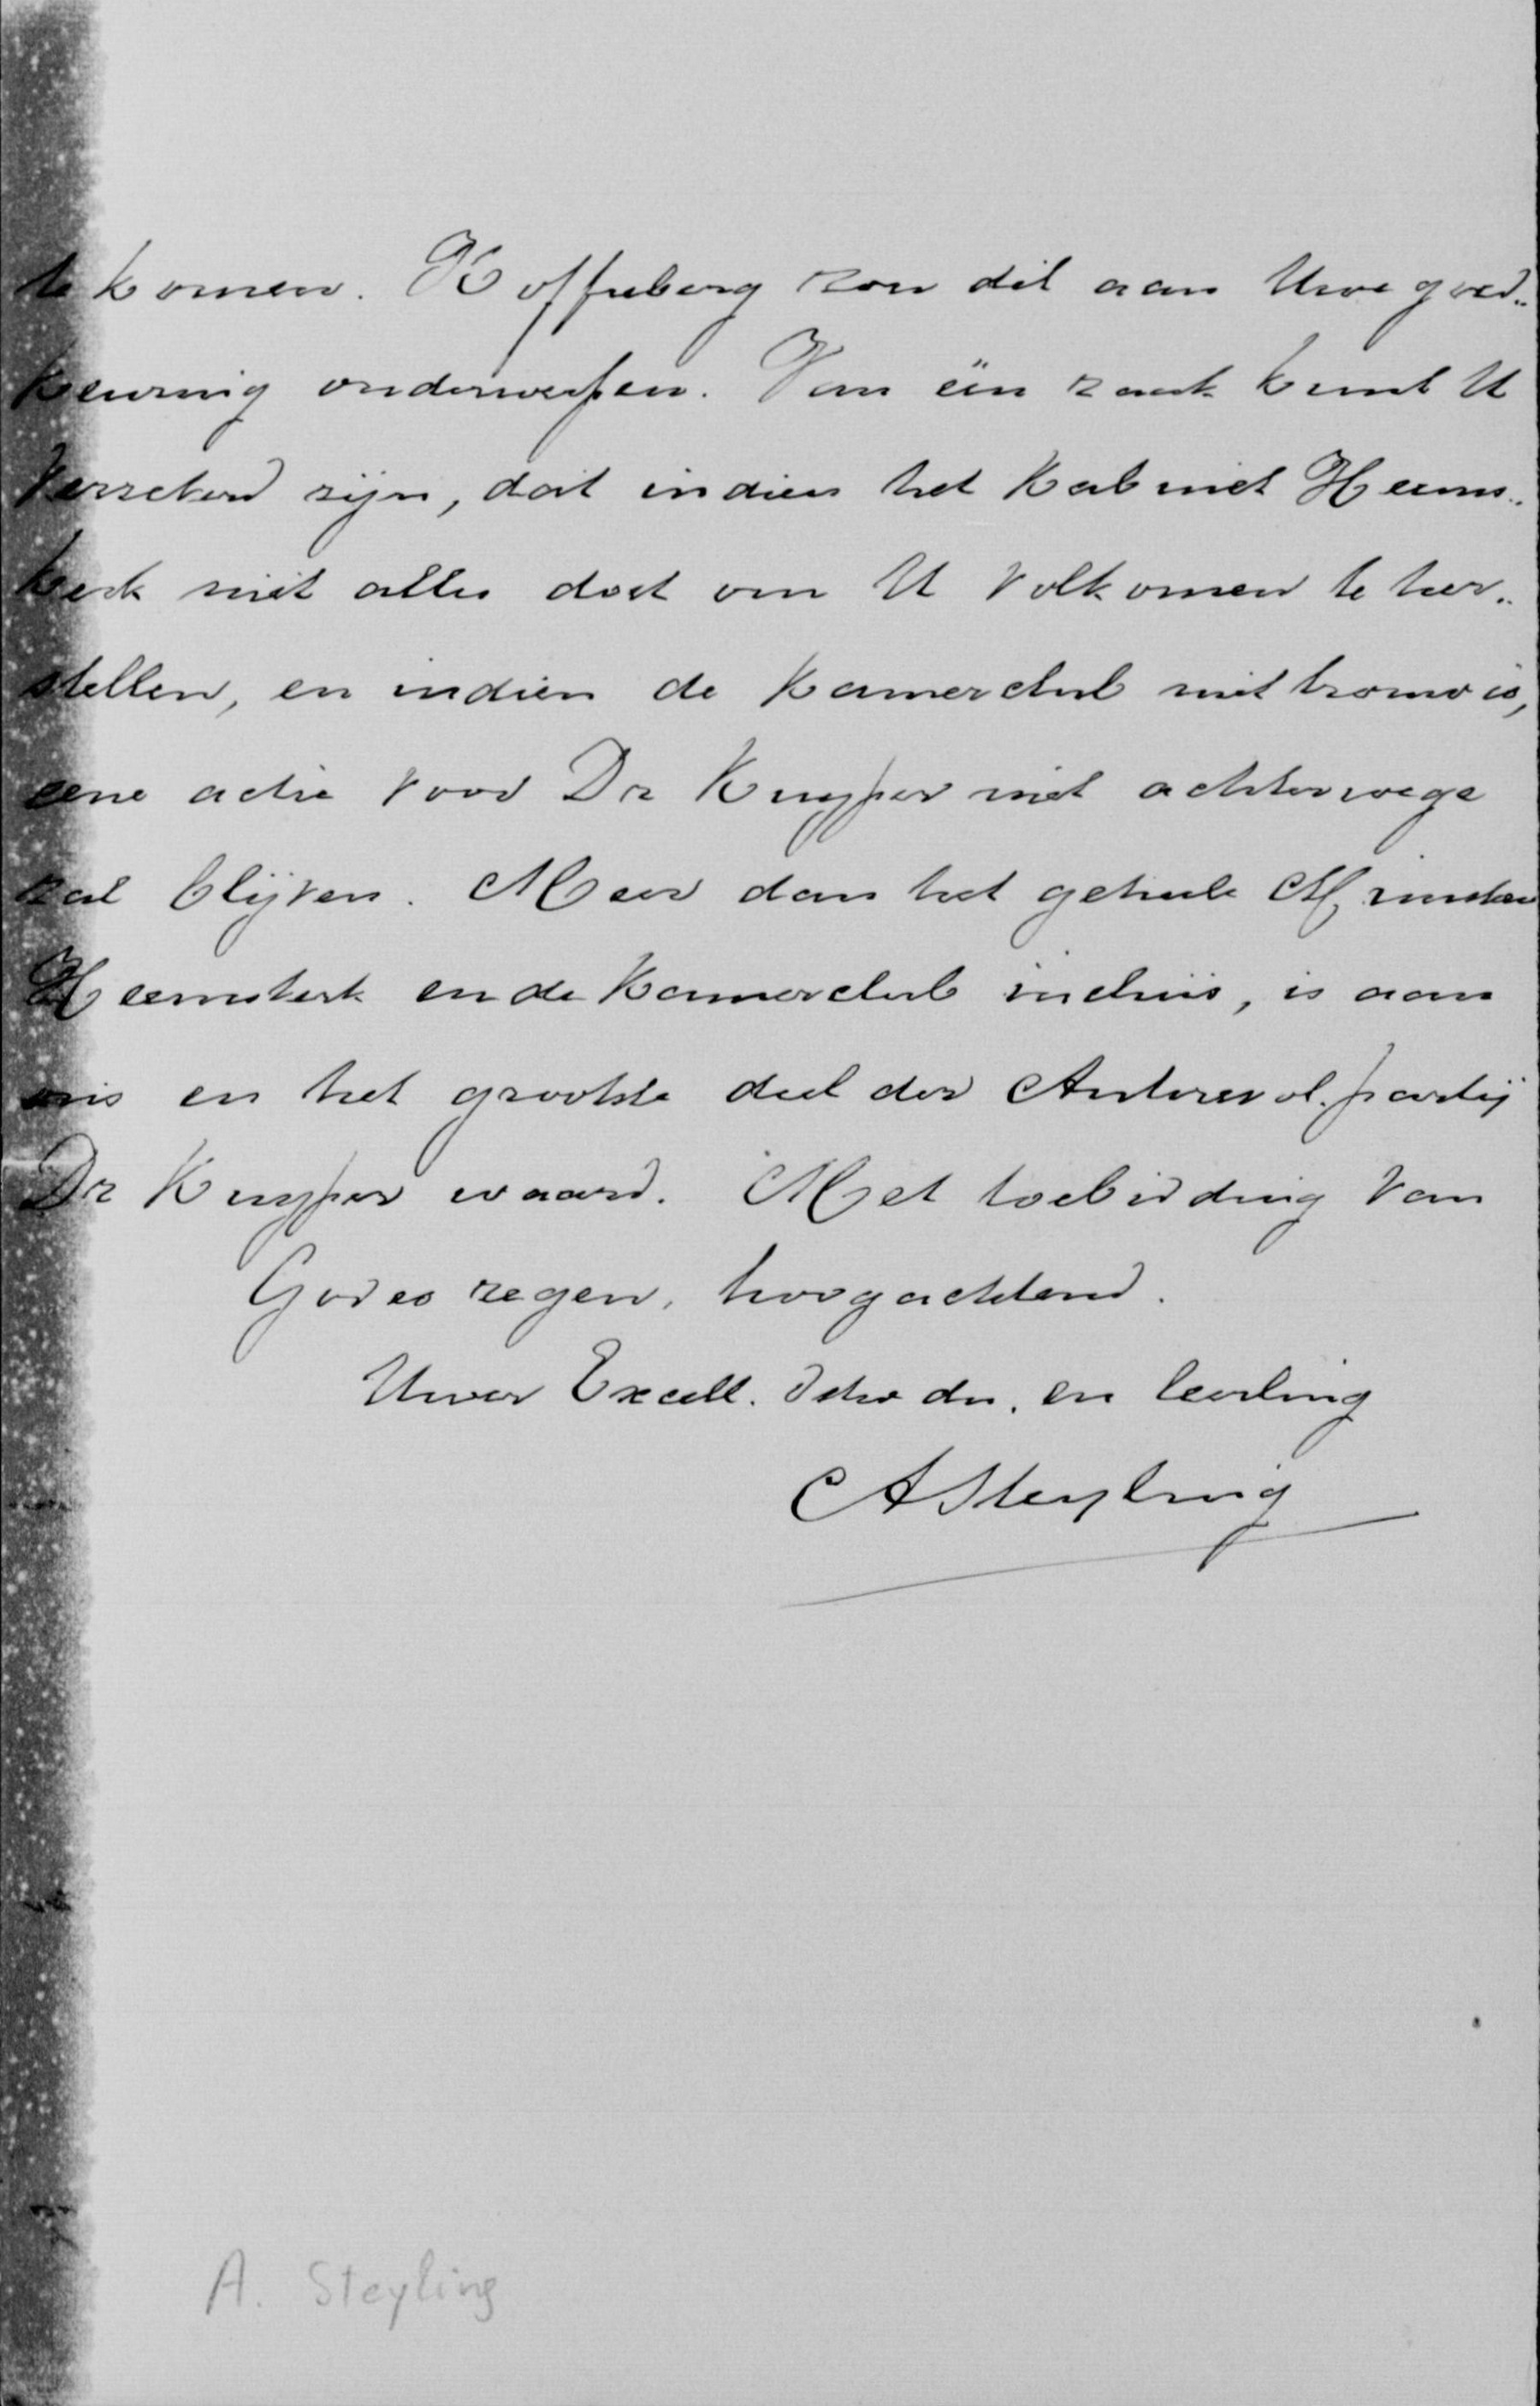 te komen. Koffieberg zou dit aan Uwe goed„
keuring onderwerpen. Van één zaak kunt U
verzekerd zijn, dat indien het Kabinet Heems„
kerk niet alles doet om U volkomen te her„
stellen, en indien de Kamerclub niet homo is,
eene actie voor Dr Kuyper niet achterwege
zal blijven. Meer dan het geheele Minister
Heemskerk en de Kamerclub incluis, is aan
ons en het grootste deel der Antirevol. partij
Dr Kuyper waard. Met toebidding van
Godes zegen, hoogachtend.
Uwer Excell. dw. dn. en leerling
ASteyling
A. Steyling